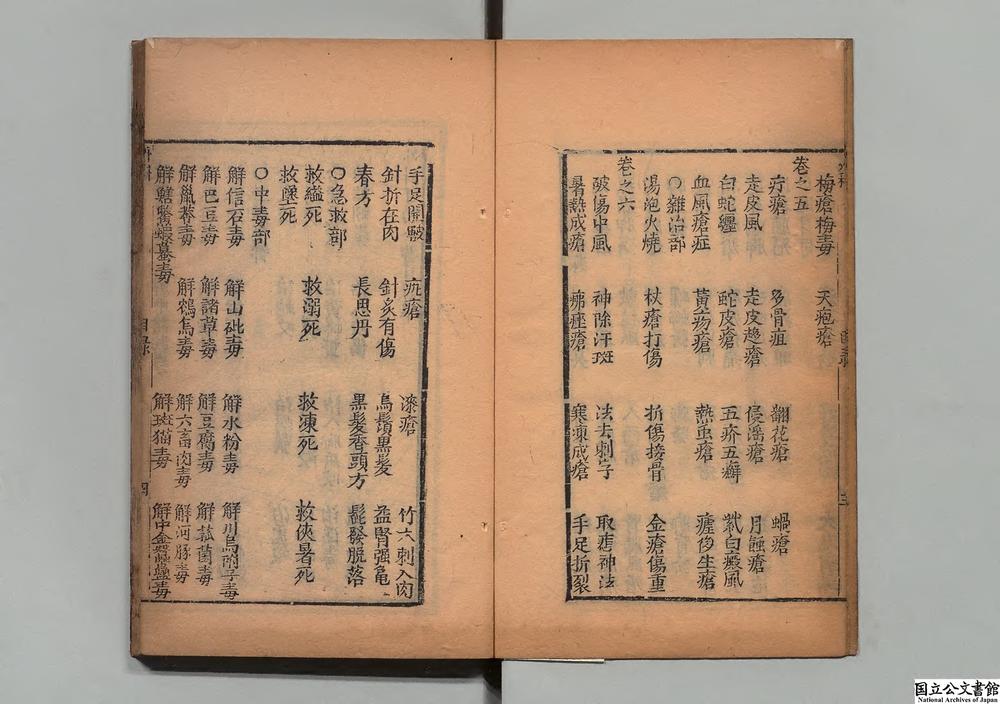 梅瘡梅毒 天疱瘡
卷之五
疔瘡 多骨疽 翻花瘡 蝸瘡
走皮風 走皮趨瘡 侵滛瘡 月蝕瘡
白蛇纏 蛇皮瘡 五疥五癬 紫白癜風
血風瘡症 黃茐瘡 熱虫瘡 痤痱生瘡
○雜治部
湯泡火燒 杖瘡打傷 折傷接骨 金瘡傷重
破傷中風 神除汗斑 法去刺字 取痣神法
卷之六
暑熱成瘡 痱痤瘡 寒凍成瘡 手足折裂
手足開皸 瘡 漆瘡 竹木刺入肉
針折在肉 針炙有傷 烏鬚黑髮 益腎强龟
春方 長思丹 黑髮香頭方 髭發脫落
○急救部
救縊死 救溺死 救凍死 救俠暑死
救墜死
○中毒部
解信石毒 解山砒毒 解水粉毒 解川烏附子毒
解巴豆毒 解諸草毒 解豆腐毒 解菰菌毒
解毒 解鴆鳥毒 解六畜肉毒 解河豚毒
解鱉蝦蟇毒 解斑猫毒 解中金蠶蠱毒
目錄 四
三
国立公文書館
National Archives of Japan